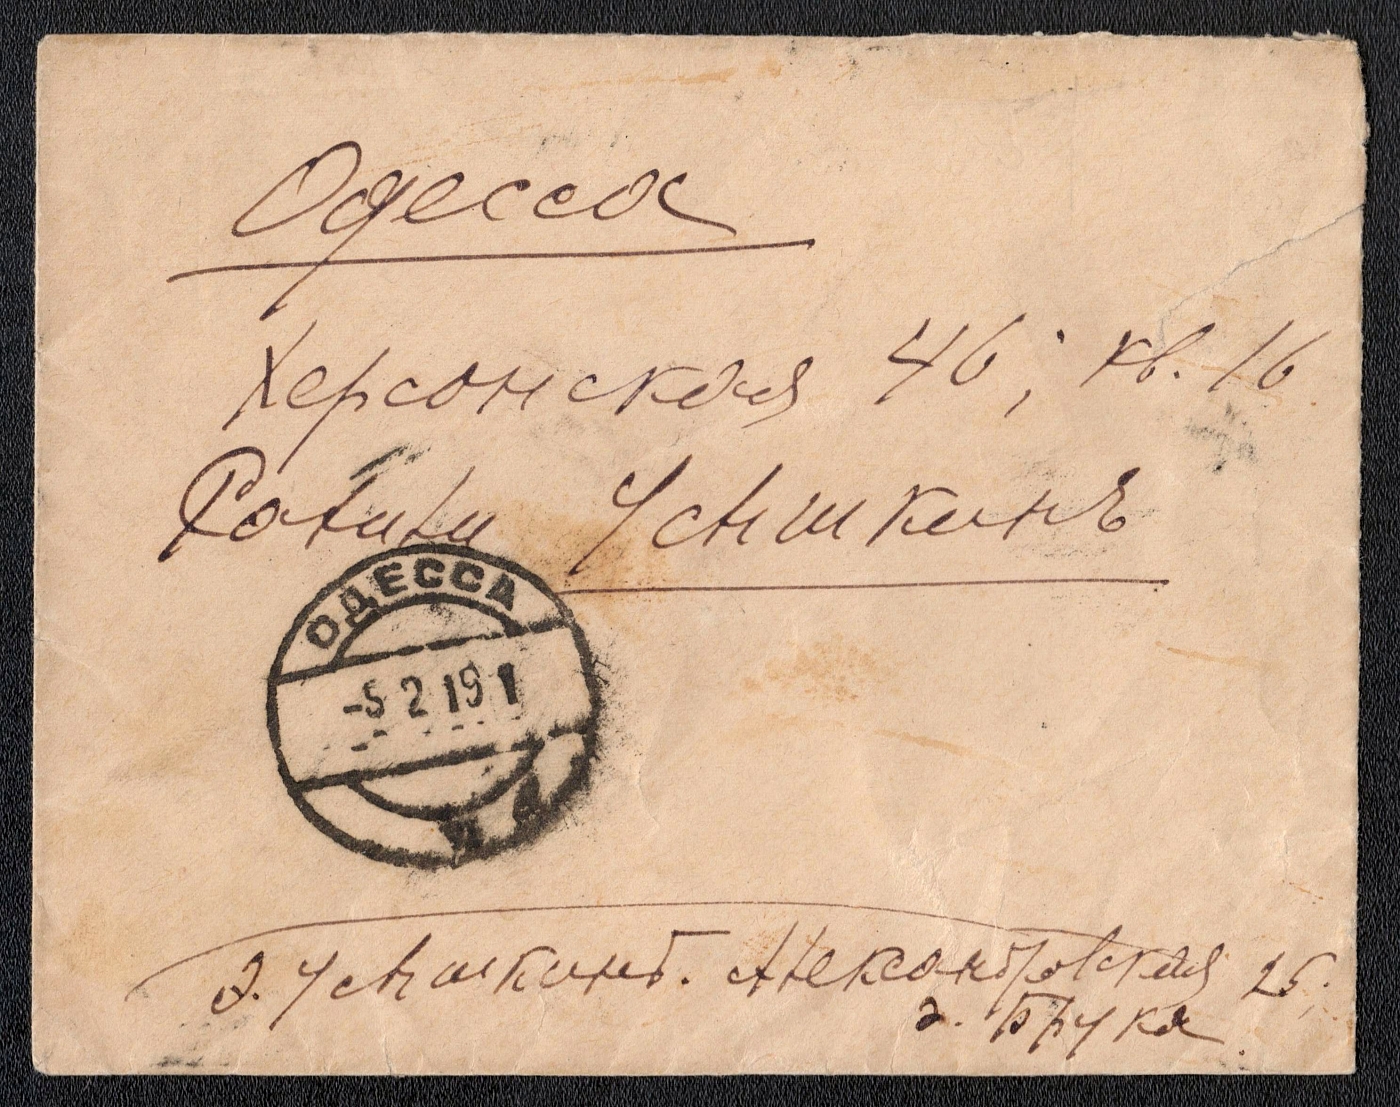 Одесса
Херсонская 46; кв. 16
Усышкинъ
ОДЕССА
-5 2 19 1
Усышкинъ. Александровская 25,
Брука.